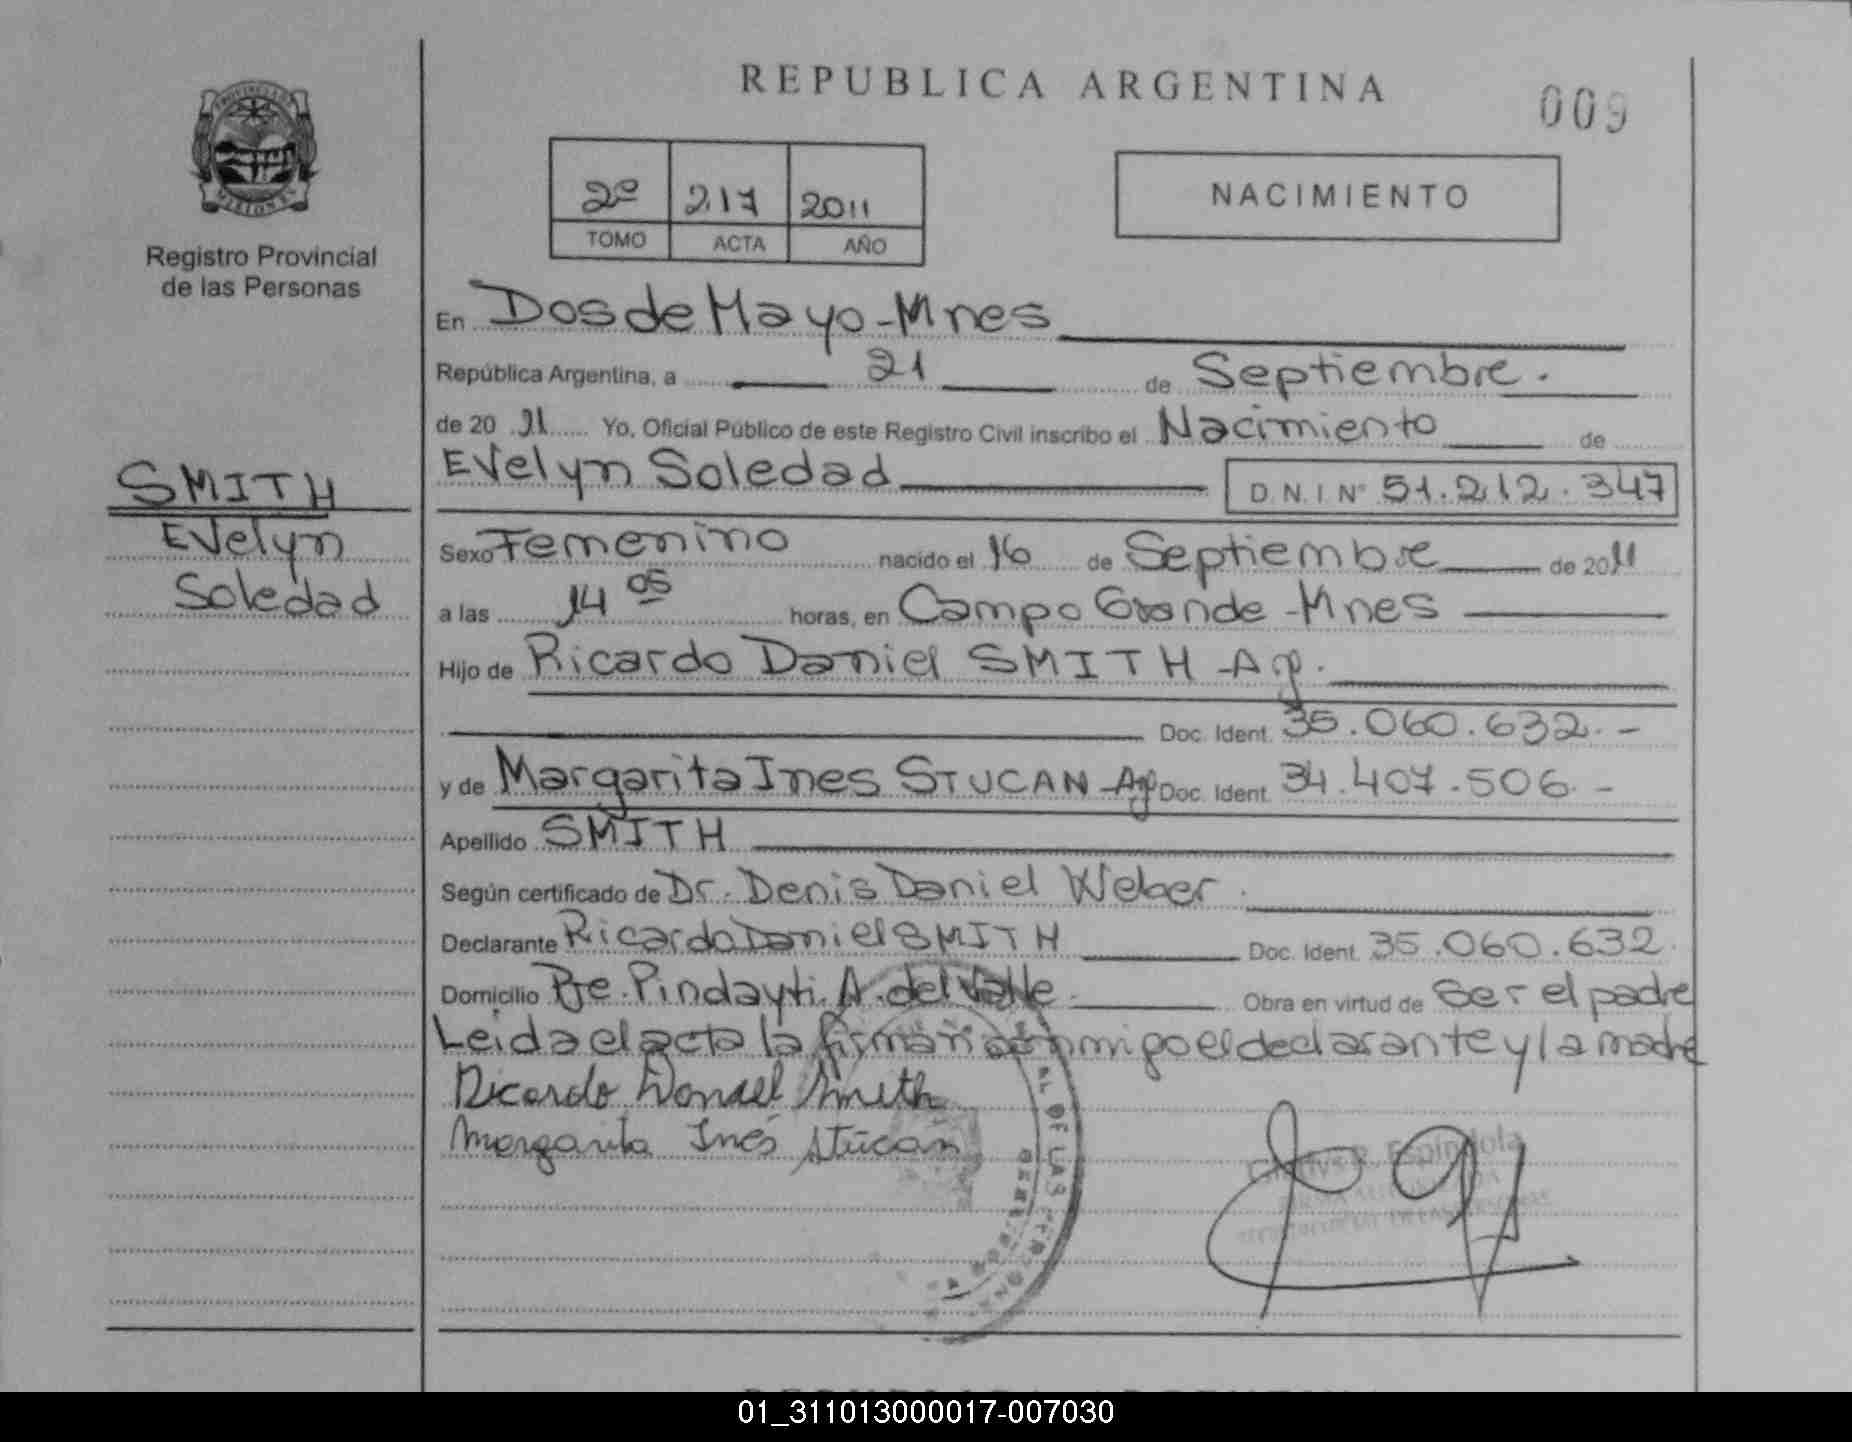 REPUBLICA ARGENTINA
009
PROVINCIA DE MISIONES
Registro Provincial
de las Personas
2º 217 2011
TOMO ACTA AÑO
NACIMIENTO
En Dos de Mayo - Mnes
República Argentina, a 21 de Septiembre.
de 2011 Yo, Oficial Público de este Registro Civil inscribo el Nacimiento de
Evelyn Soledad D.N.I Nº 51.212.347
SMITH
Evelyn
Soledad
Sexo Femenino nacido el 16 de Septiembre de 2011
a las 14 05 horas, en Campo Grande - Mnes
Hijo de Ricardo Daniel SMITH - Ag.
Doc. Ident. 35.060.632.-
y de Margarita Ines STUCAN - Ag Doc. Ident. 34.407.506.-
Apellido SMITH
Según certificado de Dr. Denis Daniel Weber.
Declarante Ricardo Daniel SMITH Doc. Ident. 35.060.632.
Domicilio Pje. Pindayti. A. del Valle Obra en virtud de Ser el padre
Leida el acta la firman conmigo el declarante y la madre
Ricardo Daniel Smith
Margarita Inés Stucan
AL DE LAS PERSONAS
R. Espíndola
01_311013000017-007030